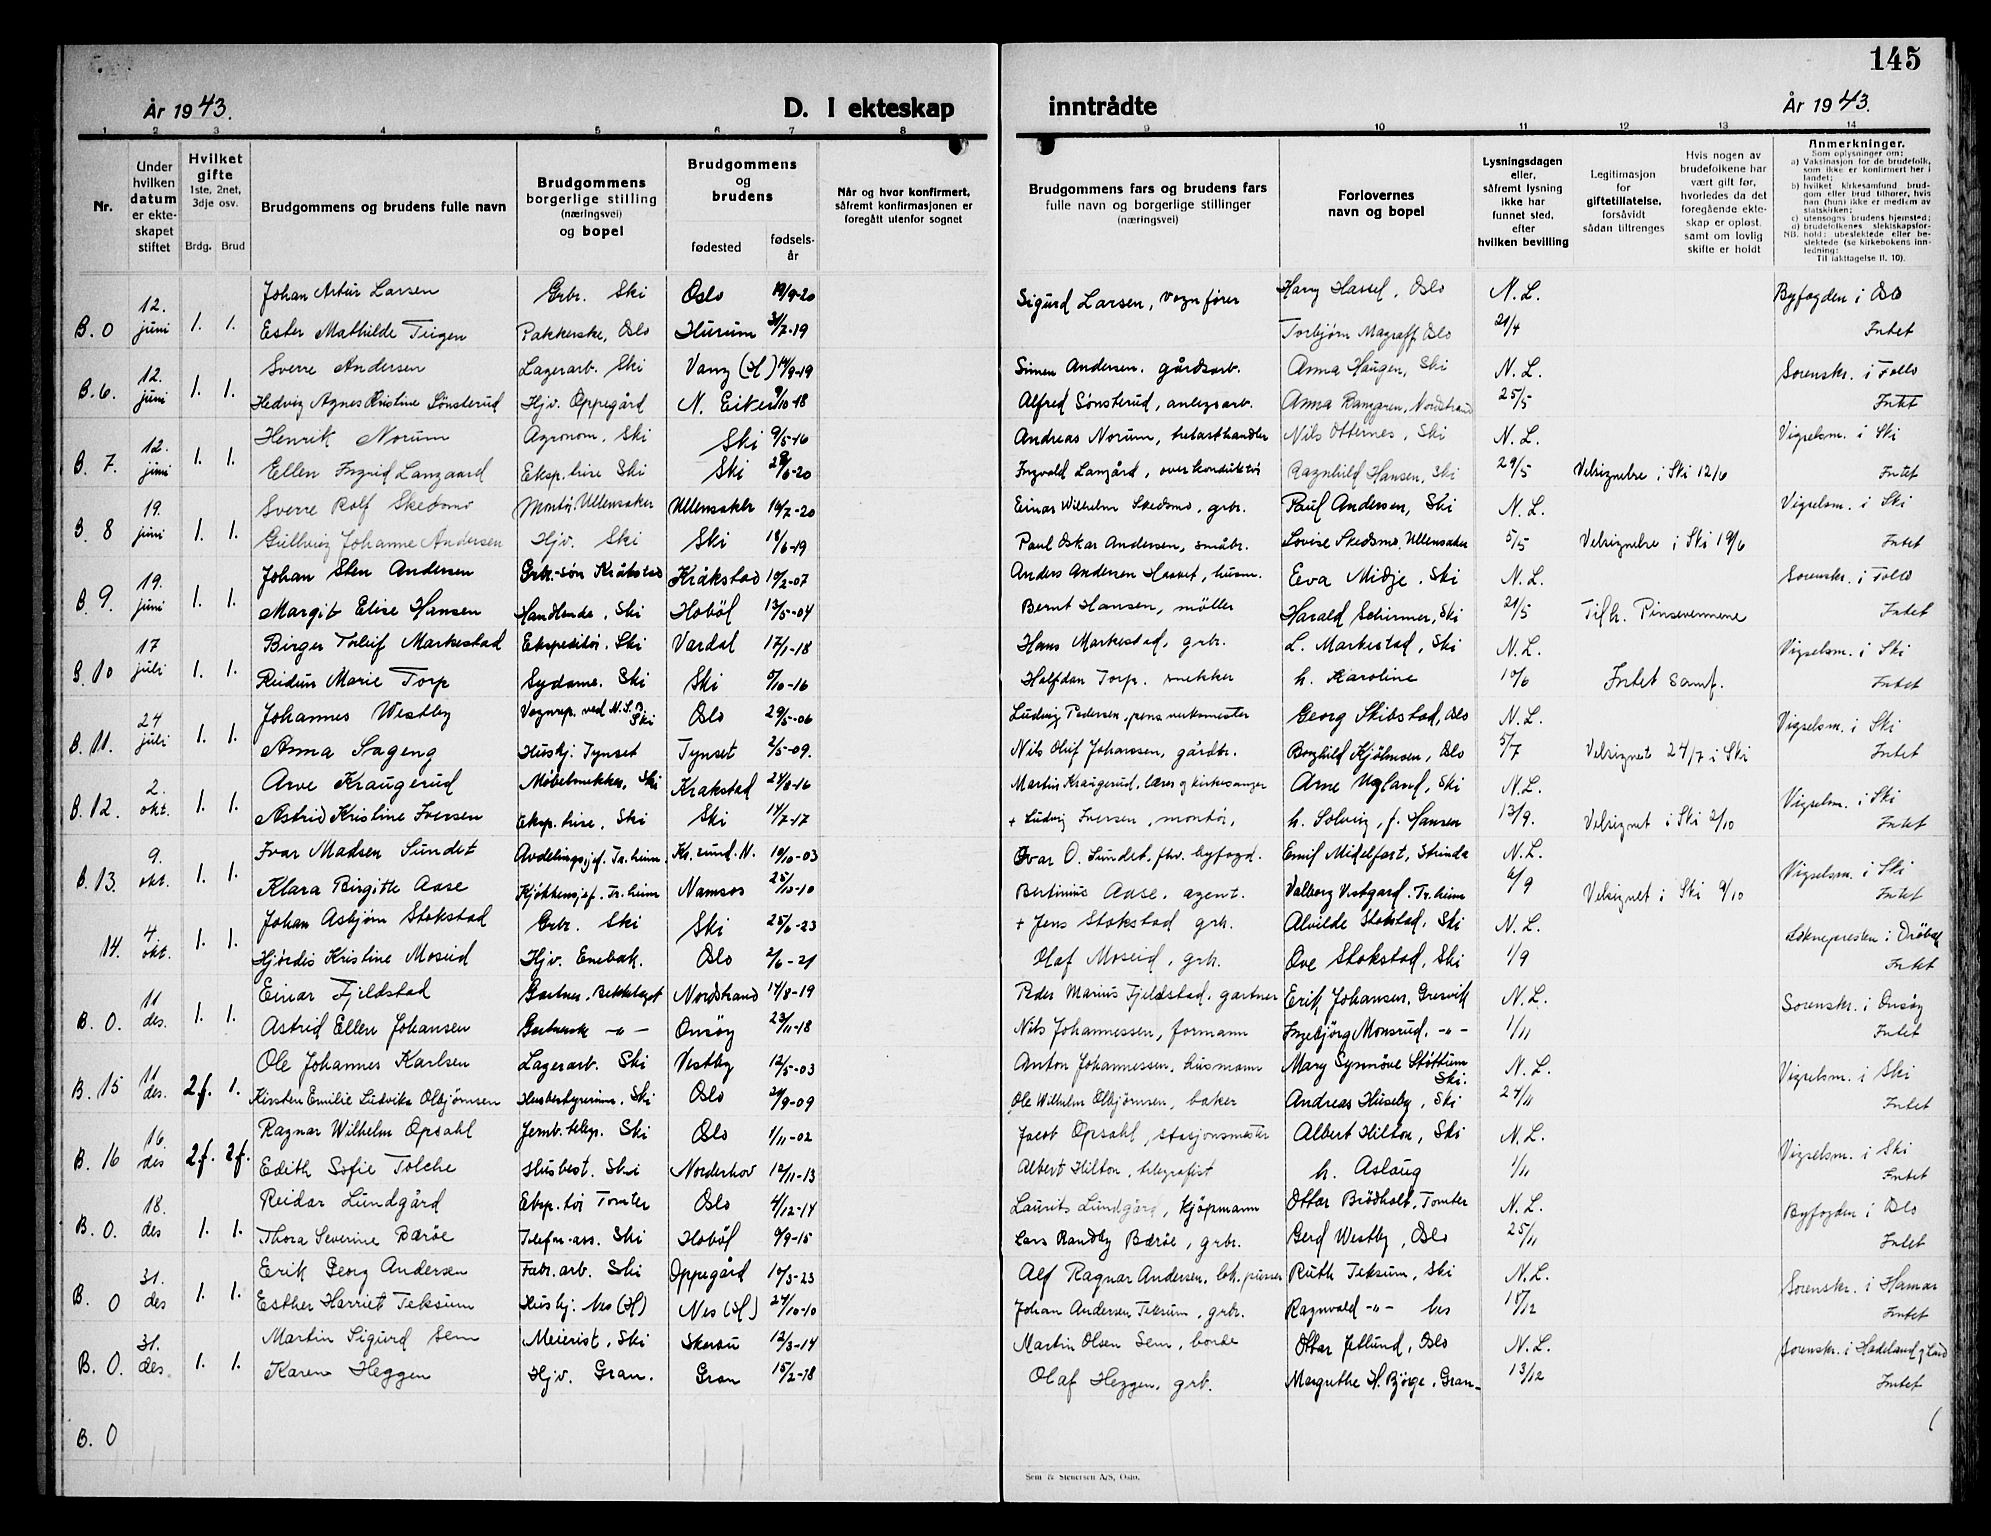 145
År 1943.
D. I ekteskap inntrådte
År 1943.
1 2 3 4 5 6 7 8 9 10 11 12 13 14
Nr.
Under hvilken datum er ekteskapet stiftet
Hvilket gifte 1ste, 2net, 3dje osv.
Brdg. Brud
Brudgommens og brudens fulle navn
Brudgommens borgerlige stilling (næringsvei) og bopel
Brudgommens og brudens
fødested
fødselsår
Når og hvor konfirmert, såfremt konfirmasjonen er foregått utenfor sognet
Brudgommens fars og brudens fars fulle navn og borgerlige stillinger (næringsvei)
Forlovernes navn og bopel
Lysningsdagen eller, såfremt lysning ikke har funnet sted, efter hvilken bevilling
Legitimasjon for giftetillatelse, forsåvidt sådan tiltrenges
Hvis nogen av brudefolkene har vært gift før, hvorledes da det foregående ekteskap er opløst. samt om lovlig skifte er holdt
Anmerkninger.
Som oplysninger om:
a) Vaksinasjon for de brudefolk, som ikke er konfirmert her i landet;
b) hvilket kirkesamfund brudgom eller brud tilhører, hvis han (hun) ikke er medlem av statskirken;
c) utensogns brudens hjemsted;
d) brudefolkenes slektskapsforhold: ubeslektede eller beslektede (se kirkebokens innledning:
Til iakttagelse II. 10).
B. 0 12. juni 1. 1. Johan Artur Larsen Grbr. Ski Oslo 19/9-20 Sigurd Larsen, vognfører Harry Hassel, Oslo N. L. Byfogden i Oslo
Ester Mathilde Teigen Pakkerske, Oslo Hurum 31/7-19 Torbjørn Magraff Oslo 21/4 Intet
B. 6. 12. juni 1. 1. Sverre Andersen Lagerarb. Ski Vang (H) 14/9-19 Simen Andersen, gårdsarb. Anna Haugen, Ski N. L. Sorenskr. i Follo
Hedvig Agnes Kristine Sønsterud Hjv. Oppegård N. Eiker 9/10-18 Alfred Sønsterud, anlegsarb. Anna Ranggren, Nordstrand 25/5 Intet
B. 7. 12. juni 1. 1. Henrik Norum Agronom, Ski Ski 9/5-16 Andreas Norum, trelasthandler Nils Otternes, Ski N. L. Vigselsm. i Ski
Ellen Ingrid Langaard Eksp.trise Ski Ski 28/6-20 Ingvald Langård, overkonduktør Ragnhild Hansen, Ski 29/5 Velsignelse i Ski 12/6 Intet
B. 8 19. juni 1. 1. Sverre Rolf Skedsmo Montør, Ullensaker Ullensaker 16/7-20 Einar Wilhelm Skedsmo, grbr. Paul Andersen, Ski N. L. Vigselsm. i Ski
Gullveig Johanne Andersen Hjv. Ski Ski 18/6-19 Paul Oskar Andersen, småbr. Lovise Skedsmo, Ullensaker 5/5 Velsignelse i Ski 19/6 Intet
B. 9. 19. juni 1. 1. Johan Sten Andersen Grbr.-søn Kråkstad Kråkstad 10/2-07 Anders Andersen Hasset, husm. Eva Midje, Ski N. L. Sorenskr. i Follo
Margit Elise Hansen Handlende, Ski Hobøl 13/5-04 Bernt Hansen, møller Harald Schirmer, Ski 21/5 Tilh. Pinsevennene Intet
B. 10 17 juli 1. 1. Birger Tolleif Markestad Ekspeditør. Ski Vardal 17/1-18 Hans Markestad, grbr. L. Markestad, Ski N. L. Vigselsm. i Ski
Reidun Marie Torp Sydame. Ski Ski 5/10-16 Halfdan Torp, snekker h. Karoline 10/6 Intet samf. Intet
B. 11. 24 juli 1. 1. Johannes Westby Vognrep. ved N.S.B. Ski Oslo 29/5-06 Ludvig Pedersen, pens. verksmester Georg Skibstad, Oslo N. L. Vigselsm. i Ski
Anna Sageng Hushj. Tynset Tynset 2/5-09. Nils Oluf Johansen, gårdbr. Borghild Hjølmsen, Oslo 5/7 Velsignet 24/7 i Ski Intet
B. 12. 2. okt. 1. 1. Arve Kraugerud Møbelsnekker, Ski Krakstad 24/8-16 Martin Kraugerud, lærer og kirkesanger Arne Ugland, Ski N. L. Vigselsm. i Ski
Astrid Kristine Iversen Eksp.trise. Ski Ski 14/7-17 + Ludvig Iversen, montør, h. Solveig, f. Hansen 13/9. Velsignet i Ski 2/10 Intet
B. 13. 9. okt. 1. 1. Ivar Madsen Sundet Avdelingssjef. Tr.heim Kr.sund. N. 10/10-03 Ivar O. Sundet, fhv. byfogd. Emil Midelfart, Strinda N. L. Vigselsm. i Ski
Klara Birgitte Aase Kjøkkensjef. Tr.heim Namsos 25/10-10 Bertinius Aase, agent. Valborg Vestgard. Tr.heim 6/9 Velsignet i Ski 9/10 Intet
14. 4. okt. 1. 1. Johan Asbjørn Stokstad Grbr. Ski Ski 25/6-23 + Jens Stokstad grbr. Alvilde Stokstad, Ski N. L. Soknepresten i Drøbak
Hjørdis Kristine Moseid Hjv. Enebak. Oslo 2/6-21 Olaf Moseid, grbr. Ove Stokstad, Ski 1/9 Intet
B. 0. 11 des. 1. 1. Einar Fjeldstad Gartner, Bekkelaget Nordstrand 14/8-19 Peder Marius Fjeldstad, gartner Erik Johansen, Gresvik N. L. Sorenskr. i Onsøy
Astrid Ellen Johansen -"- Onsøy 23/11-18 Nils Johannessen, formann Ingebjørg Monsrud, -"- 1/11 Intet
B. 15 11 des. 2.f. 1. Ole Johannes Karlsen Lagerarb. Ski Vestby 12/5-03 Anton Johannessen, husmann Mary Synnøve Støttum Ski. N. L. Vigselsm. i Ski
Kirsten Emilie Ludvika Olbjørnsen Husbestyrerinne, Ski Oslo 29/9-09 Ole Wilhelm Olbjørnsen, baker Andreas Huseby, Ski 24/11 Intet
B. 16 16. des 2.f. 2.f. Ragnar Wilhelm Opsahl Jernb.telegr. Ski Oslo 1/11-02 Jacob Opsahl, stasjonsmester Albert Hilton, Ski N. L. Vigselsm. i Ski
Edith Sofie Tolche Husbest. Ski Norderhov 12/11-13 Albert Hilton, telegrafist h. Aslaug 1/11 Intet
B. 0. 18. des 1. 1. Reidar Lundgård Eksp.tør Tomter Oslo 4/12-14 Laurits Lundgård, kjøpmann Ottar Brødholt, Tomter N. L. Byfogden i Oslo
Thora Severine Bærøe Telefon-ass. Ski Hobøl 9/9-15 Lars Randby Bærøe, grbr. Gerd Westby, Oslo 25/11 Intet
B. 0 31. des 1. 1. Erik Georg Andersen Fabr.arb. Ski Oppegård 10/3-23 Alf Ragnar Andersen, lok.pusser Ruth Teksum, Ski N. L. Sorenskr. i Hamar
Esther Harriet Teksum Hushj. Nes (H) Nes (H) 24/10-10 Johan Andersen Teksum, grbr. Ragnvald -"- Nes 18/12 Intet
B. 0. 31. des. 1. 1. Martin Sigurd Sem Meierist, Ski 12/3-14 Martin Olsen Sem, bonde Ottar Jetlund, Oslo N. L. Sorenskr. i Hadeland og Land
Karen Heggen Hjv. Gran. Gran 15/2-18 Olaf Heggen, grb. Margrethe H. Bjørge, Gran 13/12 Intet
B. 0
Sem & Stenersen A/S, Oslo.